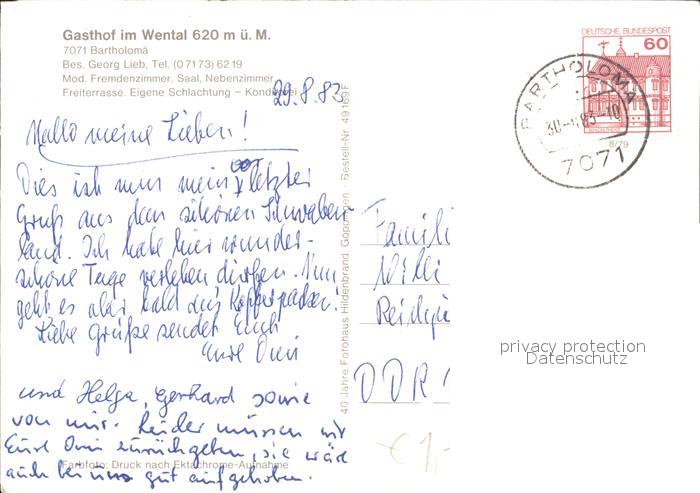 Gasthof im Wental 620 m ü. M.
7071 Bartholomä
Bes. Georg Lieb, Tel. (07173) 6219
Mod. Fremdenzimmer, Saal, Nebenzimmer
Freiterrasse. Eigene Schlachtung – Konditorei
29.8.83
Hallo meine Lieben!
Dies ist nun mein vorletzter
Gruß aus dem schönen Schwaben-
land. Ich habe hier wunder-
schöne Tage verleben dürfen. Nun
geht es aber bald ans Kofferpacken!
Liebe Grüße sendet Euch
Eure Omi
und Helga, Gerhard sowie
von mir. Leider müssen wir
Eure Omi zurückgeben, sie wäre
auch bei uns gut aufgehoben.
Farbfoto: Druck nach Ektachrome-Aufnahme
40 Jahre Fotohaus Hildenbrand, Göppingen · Bestell-Nr. 49169F
DEUTSCHE BUNDESPOST
60
8/79
BARTHOLOMÄ
7071
Famili
Willi
DDR
€ 1,-
privacy protection
Datenschutz